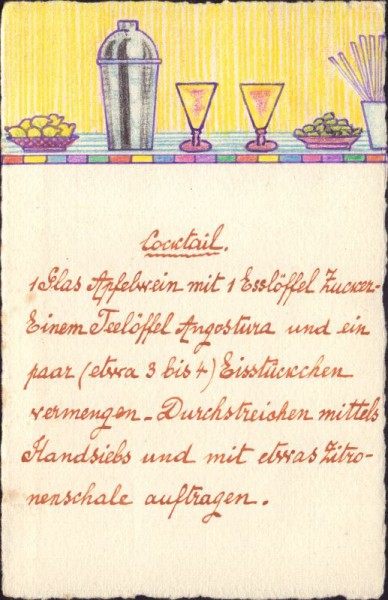 Cocktail.
1 Glas Apfelwein mit 1 Esslöffel Zucker-
Einem Teelöffel Angostura und ein
paar (etwa 3 bis 4) Eisstückchen
vermengen - Durchstreichen mittels
Handsiebs und mit etwas Zitro-
nenschale auftragen.